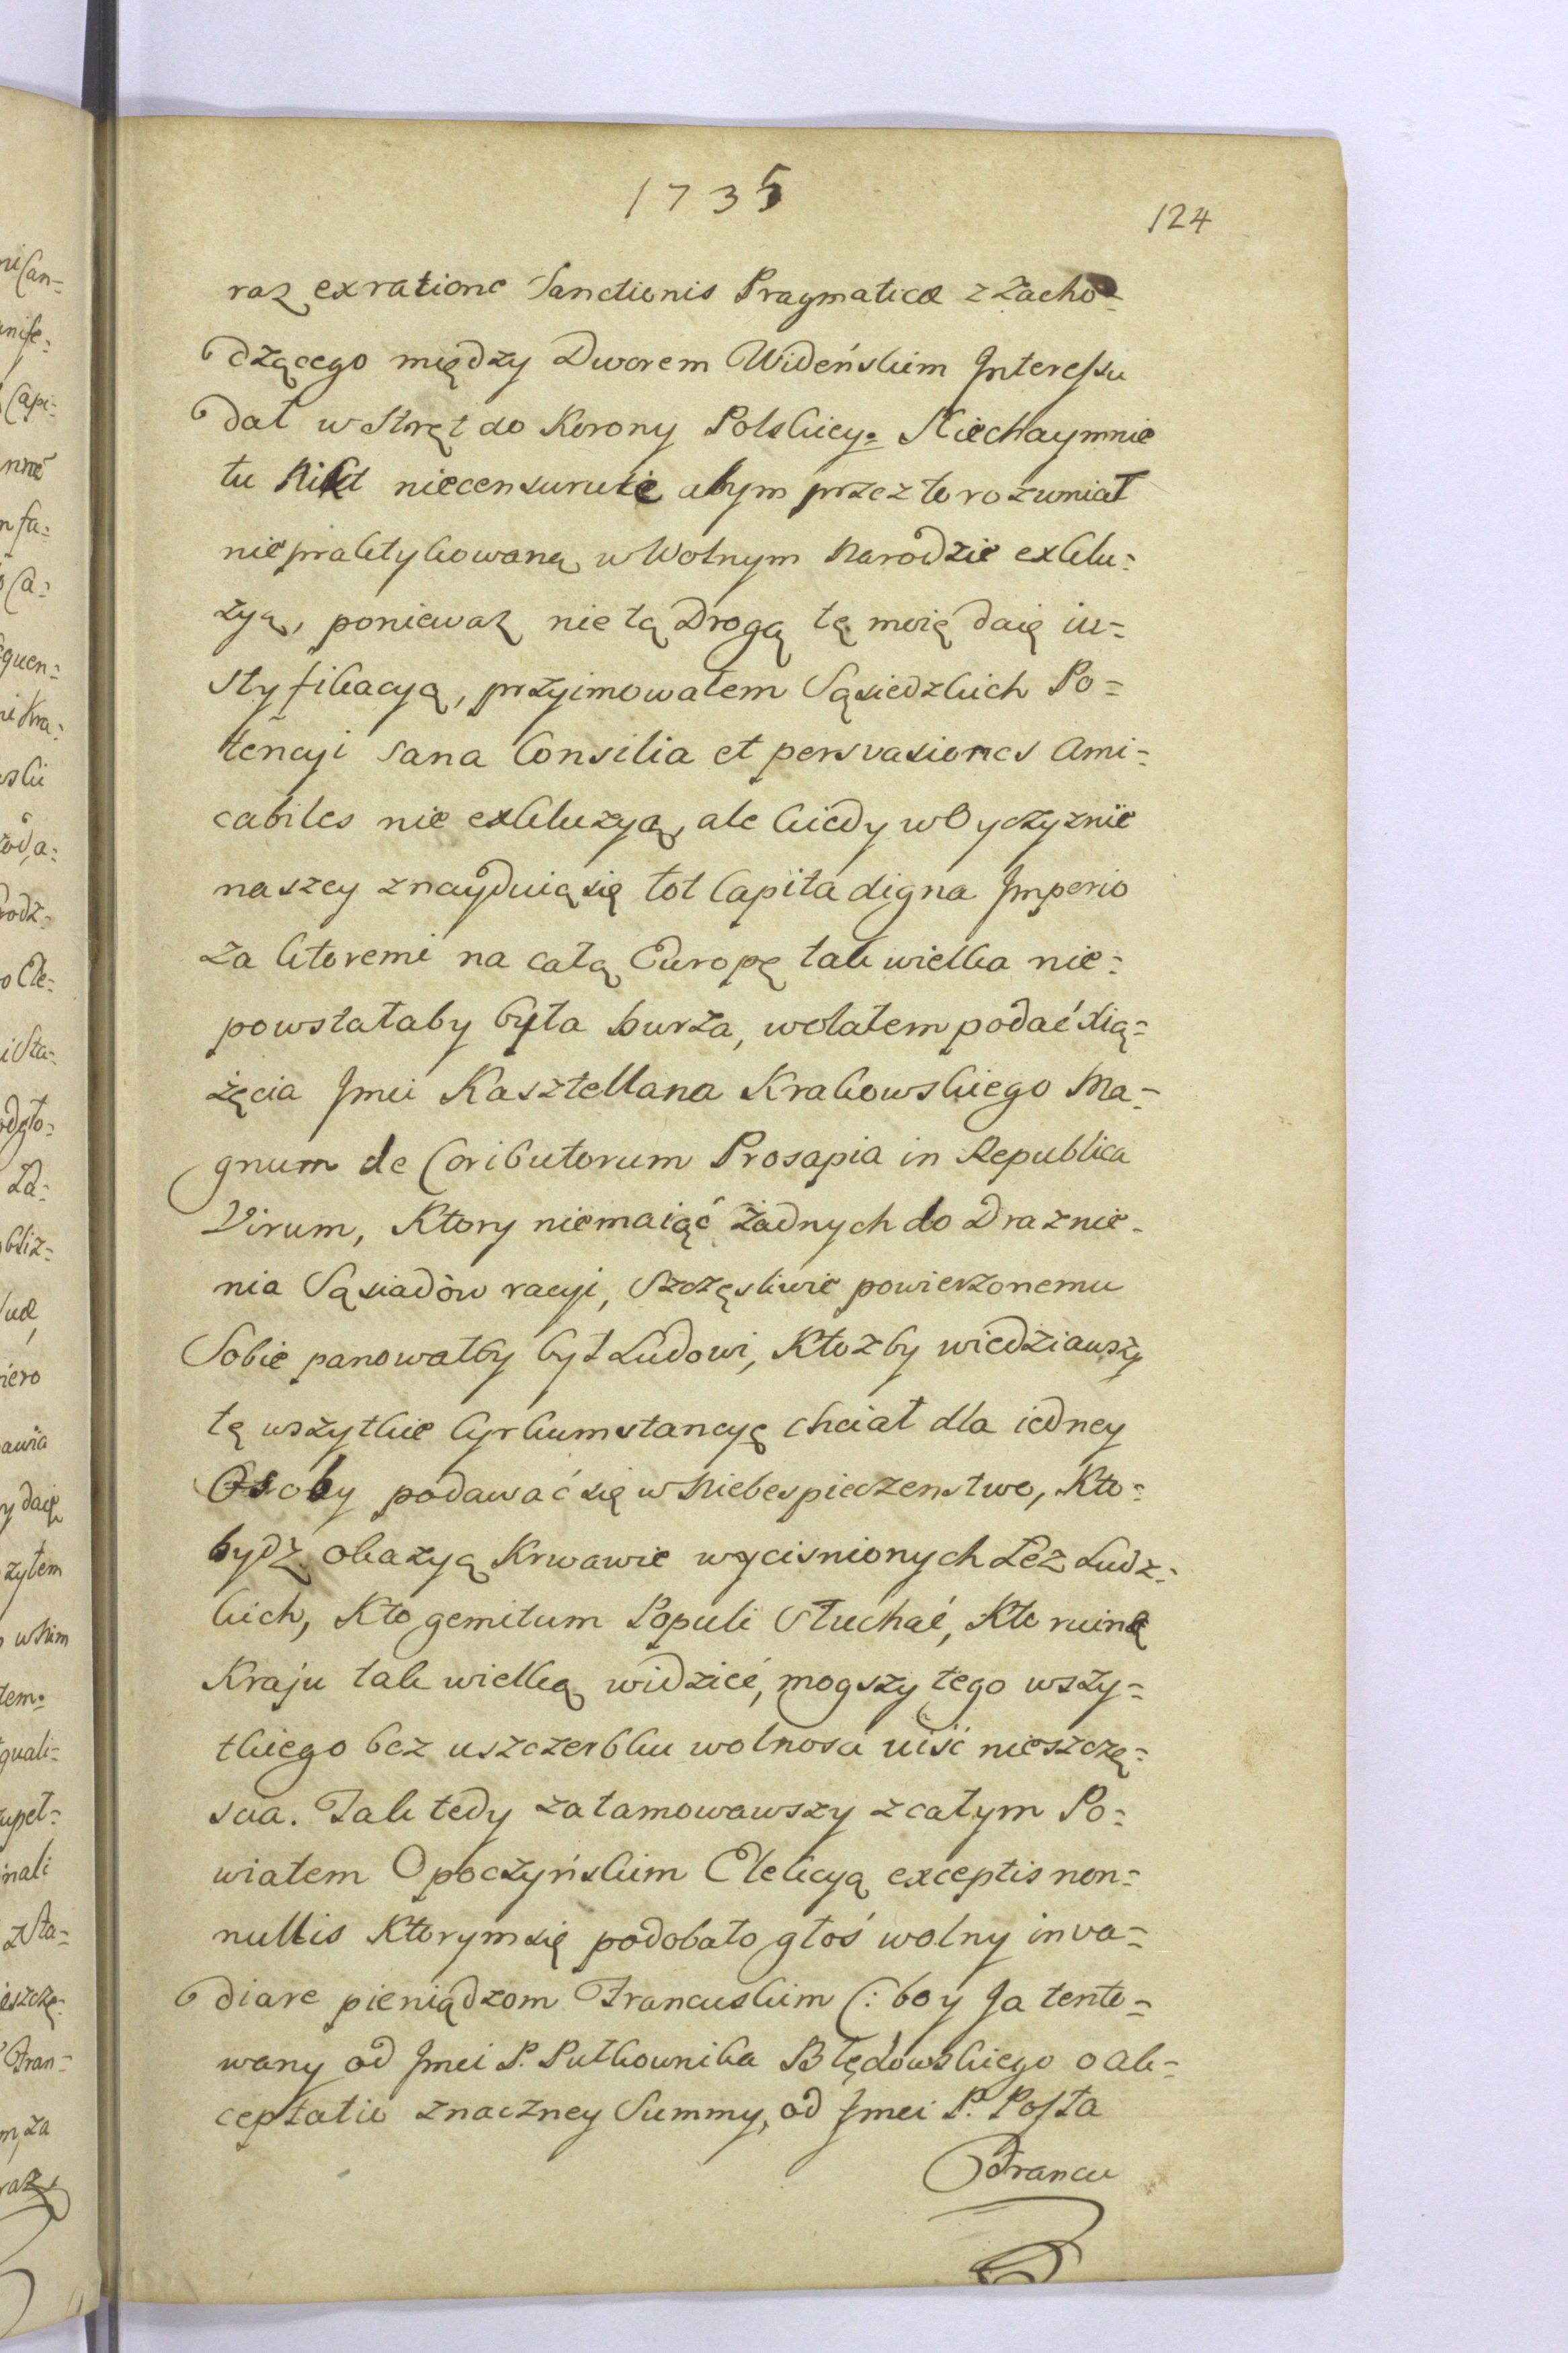 1735
124
raz exratione Sanctionis Pragmaticæ z zacho=
dzącego między Dworem Wideńskim Interessu
dał wstręt do Korony Polskiey. Niechaymnie
tu Nikt niecensuruie abym przez to rozumiał
niepraktykowaną w Wolnym Narodzie exklu=
zyą, ponieważ nie tą Drogą tę moię daię iu=
styfikacyą, przyimowałem Sąsiedzkich Po=
tencyi sana Consilia et persvasiones Ami=
cabiles nie exkluzyą, ale kiedy w Oyczyznie
naszey znayduią się tot Capita digna Imperio
za ktoremi na całą Europę tak wielka nie=
powstałaby była burza, wolałem podać Xią=
żęcia Jmci Kasztellana Krakowskiego Ma=
gnum de Coributorum Prosapia in Republica
Virum, Ktory niemaiąć żadnych do Draznie=
nia Sąsiadów racyi, Szczęsliwie powierzonemu
Sobie panowałby był Ludowi, Ktozby wiedziawszy
tę wszytkie Cyrkumstancyę chciał dla iedney
Osoby podawać się w Niebespieczenstwo, Kto=
bydź okazyą Krwawie wycisnionych Łez Ludz=
kich, Kto gemitum Populi Słuchać, Kto ruinę
Kraju tak wielką widzieć, mogszy tego wszy=
tkiego bez uszczerbku wolnosci uiść nieszczę=
scia. Tak tedy zatamowawszy z całym Po=
wiatem Opoczyńskim Elekcyą exceptis non=
nullis Ktorym się podobało głoś wolny inva=
diare pieniądzom Francuskim (: bo y Ja tento=
wany od Jmci P. Pułkownika Błędowskiego o ak=
ceptatio znaczney Summy, od Jmci P. Posła
Francu